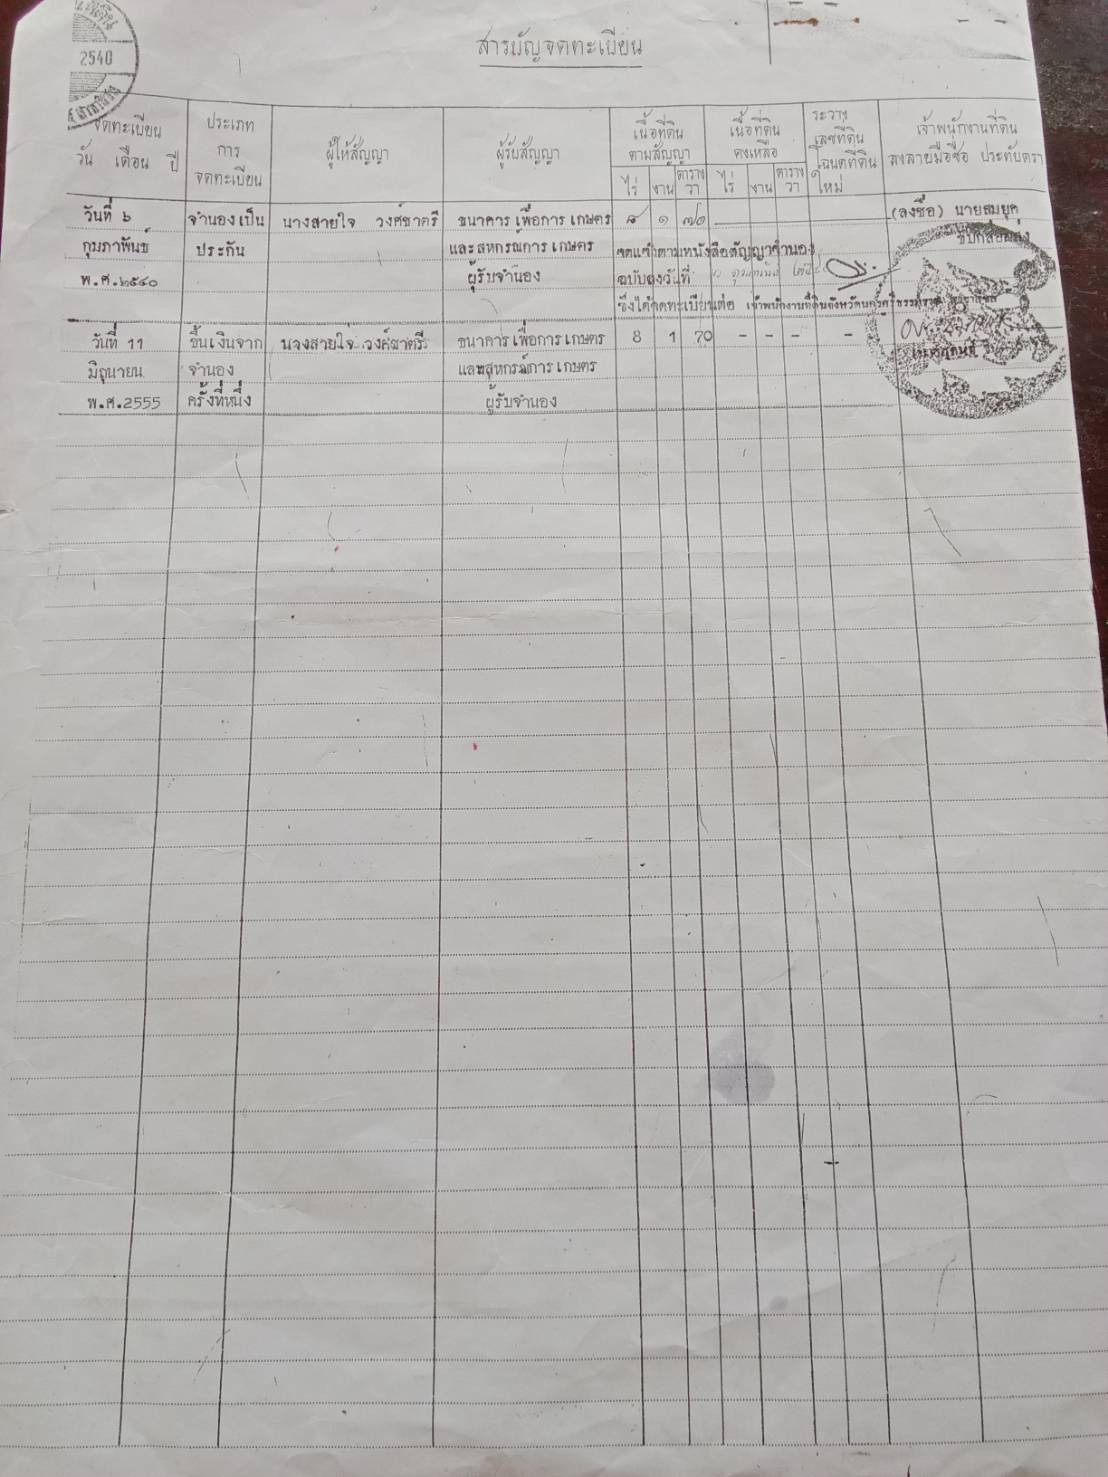 2540
สารบัญจดทะเบียน
จดทะเบียน
วัน เดือน ปี
ประเภท
การ
จดทะเบียน
ผู้ให้สัญญา
ผู้รับสัญญา
เนื้อที่ดิน
ตามสัญญา
ไร่ งาน ตาราง
วา
เนื้อที่ดิน
คงเหลือ
ไร่ งาน ตาราง
วา
ระวาง
เลขที่ดิน
โฉนดที่ดิน
ใหม่
เจ้าพนักงานที่ดิน
ลงลายมือชื่อ ประทับตรา
วันที่ ๖ จำนองเป็น นางสายใจ วงศ์ชาตรี ธนาคารเพื่อการเกษตร ๘ ๑ ๗๐ (ลงชื่อ) นายสมยุค
กุมภาพันธ์ ประกัน และสหกรณ์การเกษตร จดแจ้งตามหนังสือสัญญาจำนอง
พ.ศ.๒๕๔๐ ผู้รับจำนอง ฉบับลงวันที่
ซึ่งได้จดทะเบียนต่อ เจ้าพนักงานที่ดินจังหวัดนครศรีธรรมราช
วันที่ 11 ขึ้นเงินจาก นางสายใจ วงศ์ชาตรี ธนาคารเพื่อการเกษตร 8 1 70 - - - -
มิถุนายน จำนอง และสหกรณ์การเกษตร
พ.ศ.2555 ครั้งที่หนึ่ง ผู้รับจำนอง